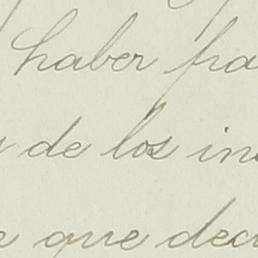 haber pa
de los in
que dec